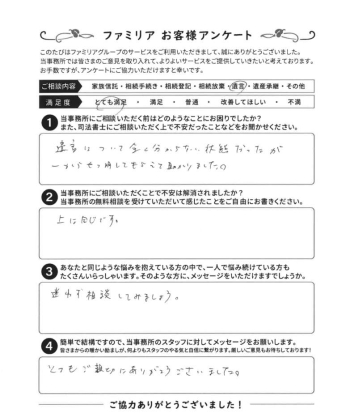 ファミリア お客様アンケート
このたびはファミリアグループのサービスをご利用いただきまして、誠にありがとうございました。
当事務所では皆さまのご意見を取り入れて、よりよいサービスをご提供していきたいと考えております。
お手数ですが、アンケートにご協力いただけますと幸いです。
ご相談内容 家族信託・相続手続き・相続登記・相続放棄・遺言・遺産承継・その他
満足度 とても満足 ・ 満足 ・ 普通 ・ 改善してほしい ・ 不満
1 当事務所にご相談いただく前はどのようなことにお困りでしたか?
また、司法書士にご相談いただく上で不安だったことなどをお聞かせください。
遺言について全く分からない状態だったが
一からせつ明してもらって助かりました。
2 当事務所にご相談いただくことで不安は解消されましたか?
当事務所の無料相談を受けていただいて感じたことをご自由にお書きください。
上に同じです。
3 あなたと同じような悩みを抱えている方の中で、一人で悩み続けている方も
たくさんいらっしゃいます。そのような方に、メッセージをいただけますでしょうか。
迷わず相談してみましょう。
4 簡単で結構ですので、当事務所のスタッフに対してメッセージをお願いします。
皆さまからの暖かい励ましが、何よりもスタッフのやる気と自信に繋がります。厳しいご意見もお待ちしております!
とてもご親切にありがとうございました。
ご協力ありがとうございました!